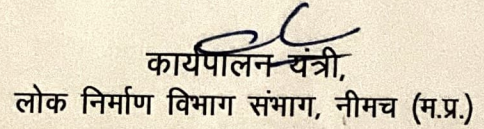 कार्यपालन यंत्री,
लोक निर्माण विभाग संभाग, नीमच (म.प्र.)